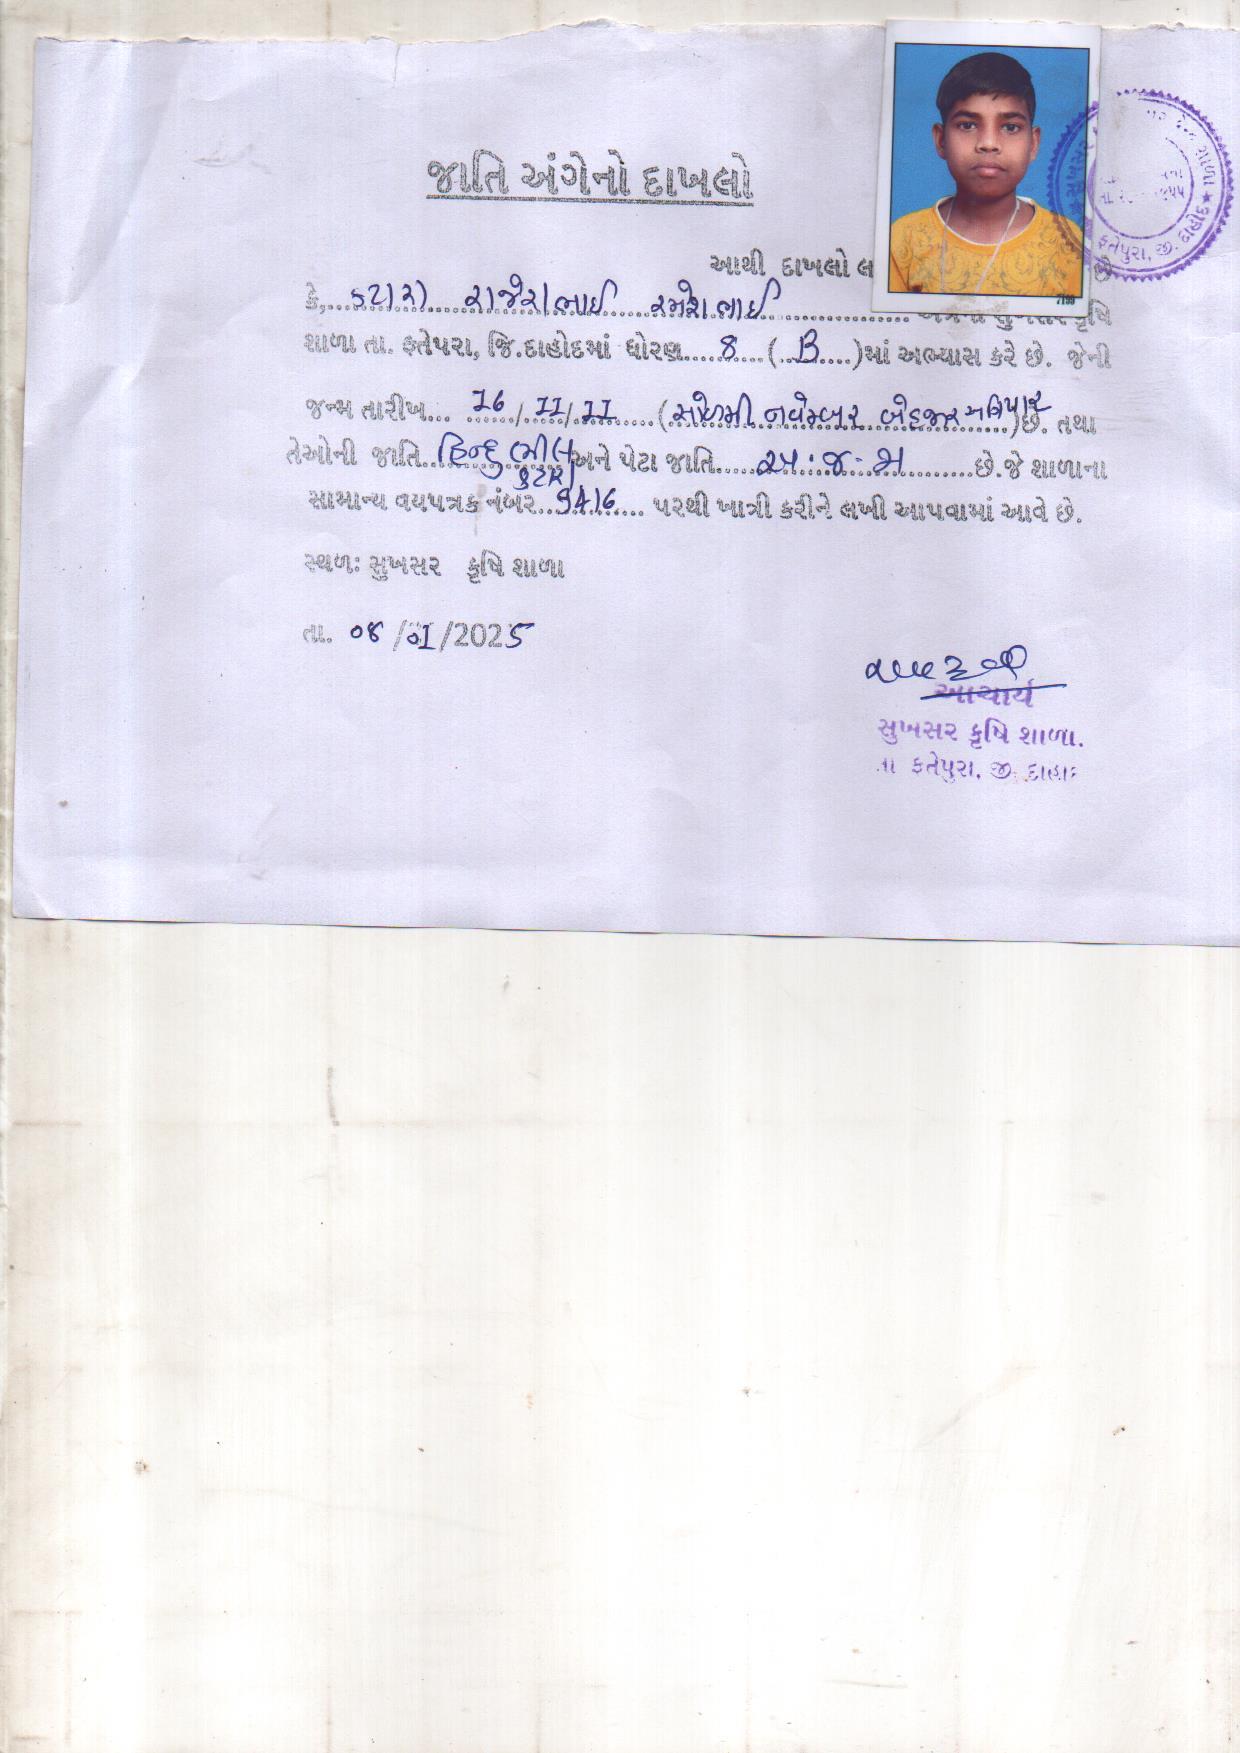 જાતિ અંગેનો દાખલો
આથી દાખલો લ
કે,.... કટારા રાજેશભાઈ રમેશભાઈ ............... સુખસર કૃષિ
શાળા તા. ફતેપરા, જિ.દાહોદમાં ધોરણ.....8....(..B....)માં અભ્યાસ કરે છે. જેની
જન્મ તારીખ... 16/11/11......(સોળમી નવેમ્બર બેહજાર અગિયાર)છે. તથા
તેઓની જાતિ..હિન્દુ ભીલ અને પેટા જાતિ.....અ.જ.જા..........છે.જે શાળાના
કટારા
સામાન્ય વયપત્રક નંબર..9416...... પરથી ખાત્રી કરીને લખી આપવામાં આવે છે.
સ્થળઃ સુખસર કૃષિ શાળા
તા. 08/01/2025
આચાર્ય
સુખસર કૃષિ શાળા.
તા ફતેપુરા, જી. દાહોદ
ફતેપુરા, જી. દાહોદ
7199